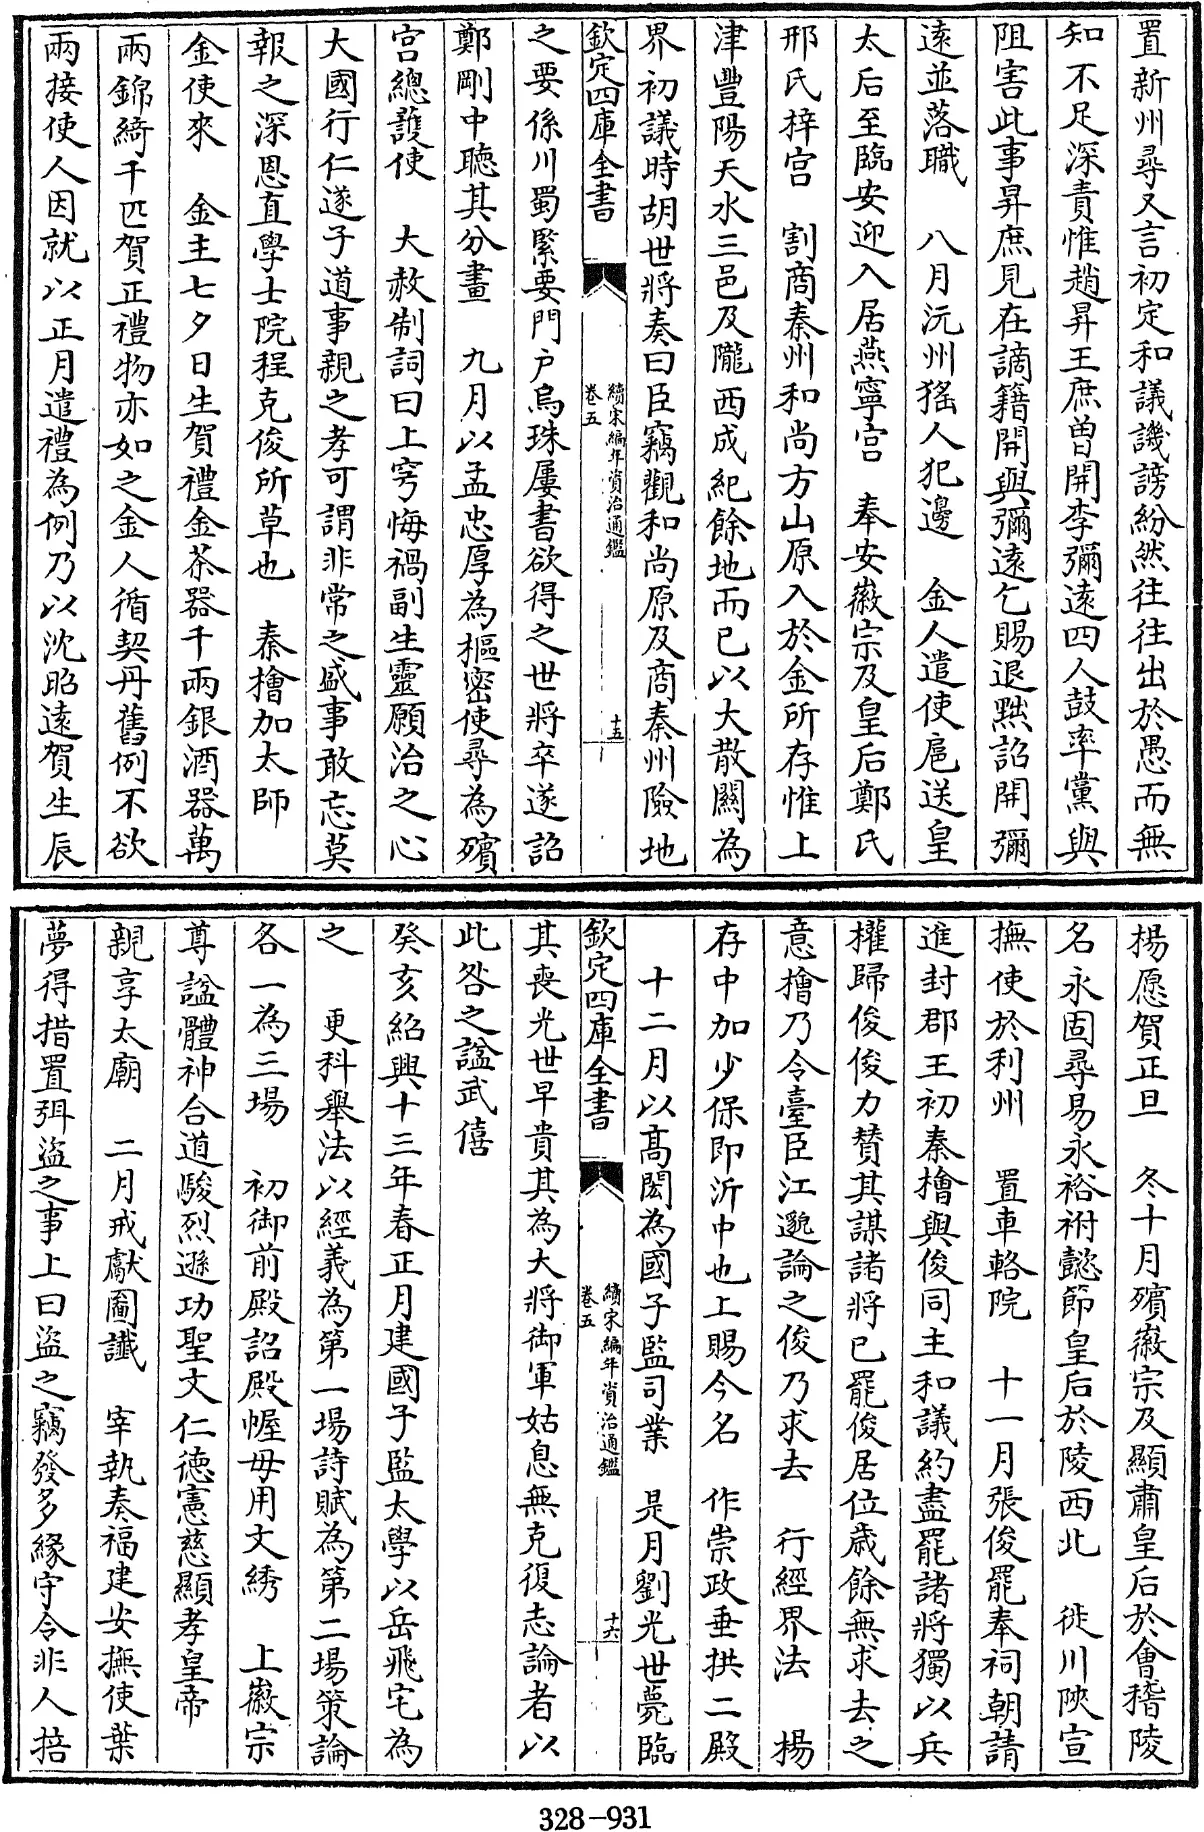 置新州尋又言初定和議譏謗紛然往往出於愚而無
知不足深責惟趙昇王庶曽開李彌遠四人鼓率黨與
阻害此事昇庶見在謫籍開與彌遠乞賜退黜詔開彌
遠並落職　八月沅州猺人犯邊　金人遣使扈送皇
太后至臨安迎入居燕寧宫　奉安徽宗及皇后鄭氏
邢氏梓宫　割商秦州和尚方山原入於金所存惟上
津豐陽天水三邑及隴西成紀餘地而已以大散關為
界初議時胡世將奏曰臣竊觀和尚原及商秦州險地
欽定四庫全書
續宋編年資治通鑑
卷五
十五
之要係川蜀緊要門户烏珠屢書欲得之世將卒遂詔
鄭剛中聴其分畫　九月以孟忠厚為樞密使尋為殯
宫總護使　大赦制詞曰上穹悔禍副生靈願治之心
大國行仁遂子道事親之孝可謂非常之盛事敢忘莫
報之深恩直學士院程克俊所草也　秦檜加太師
金使來　金主七夕日生賀禮金茶器千兩銀酒器萬
兩錦綺千匹賀正禮物亦如之金人循契丹舊例不欲
兩接使人因就以正月遣禮為例乃以沈昭遠賀生辰
楊愿賀正旦　冬十月殯徽宗及顯肅皇后於會稽陵
名永固尋易永裕祔懿節皇后於陵西北　徙川陜宣
撫使於利州　置車輅院　十一月張俊罷奉祠朝請
進封郡王初秦檜與俊同主和議約盡罷諸將獨以兵
權歸俊俊力賛其謀諸將已罷俊居位歲餘無求去之
意檜乃令臺臣江邈論之俊乃求去　行經界法　楊
存中加少保即沂中也上賜今名　作崇政垂拱二殿
十二月以髙閌為國子監司業　是月劉光世薨臨
欽定四庫全書
續宋編年資治通鑑
卷五
十六
其喪光世早貴其為大將御軍姑息無克復志論者以
此咎之諡武僖
癸亥紹興十三年春正月建國子監太學以岳飛宅為
之　更科舉法以經義為第一場詩賦為第二場策論
各一為三場　初御前殿詔殿幄毋用文綉　上徽宗
尊諡體神合道駿烈遜功聖文仁徳憲慈顯孝皇帝
親享太廟　二月戒獻圖讖　宰執奏福建安撫使葉
夢得措置弭盜之事上曰盜之竊發多緣守令非人掊
328-931